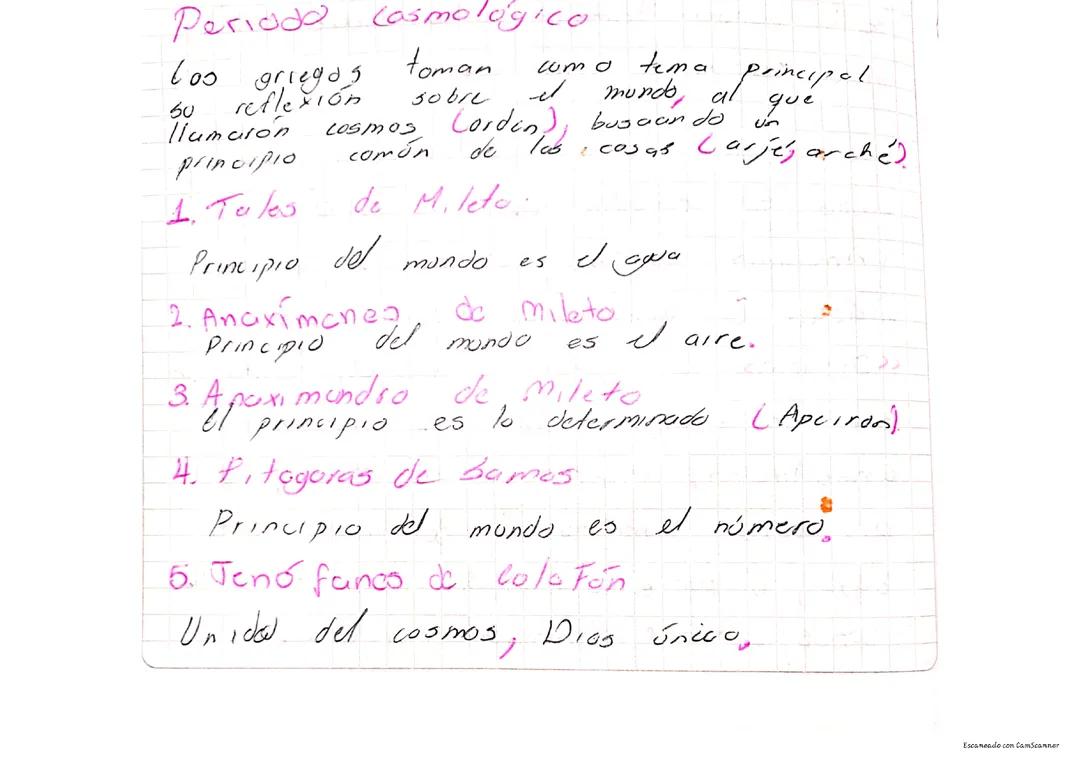 Periodo Cosmológico
Los griegos toman como tema principal
su reflexión sobre el mundo, al que
llamarón cosmos (orden), buscando un
principio común de las cosas (arjé, arché).
1. Tales de Mileto:
Principio del mundo es el agua
2. Anaxímenes de Mileto
Principio del mundo es el aire.
3. Anaximandro de Mileto
El principio es lo determinado (Apeiron)
4. Pitagoras de Samos
Principio del mundo es el número.
5. Jenófanes de Colofón
Unidad del cosmos, Dios único.
Escaneado con CamScanner